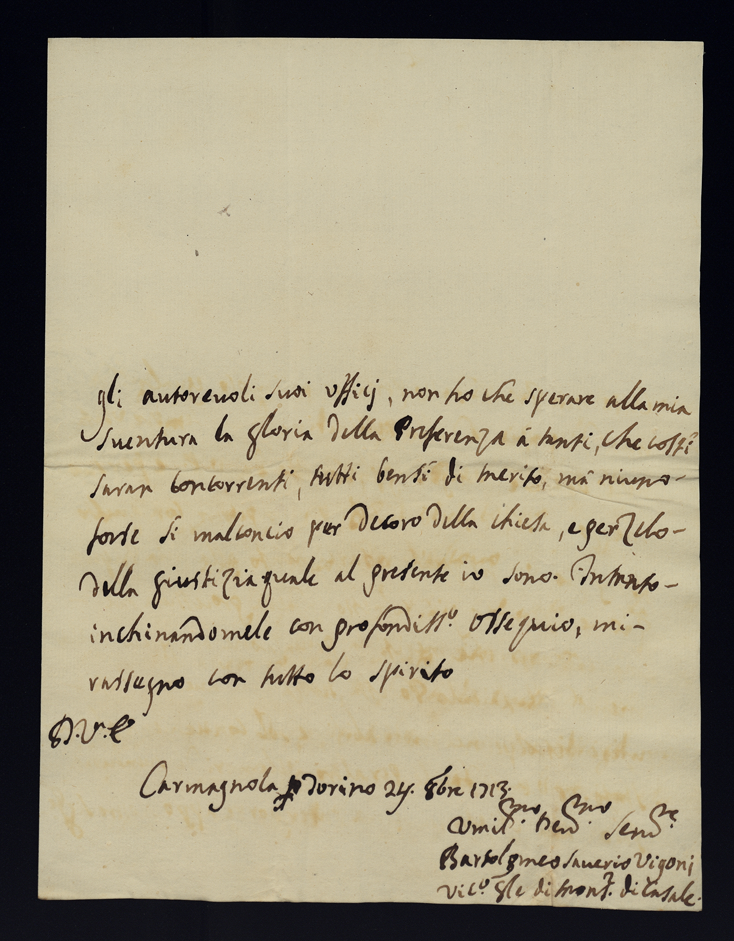 gli autoreuoli suoi vfficij, non ho che sperare alla mia
suentura la gloria della Preferenza à tanti, che costì
saran Concorrenti, tutti bensì di merito, mà niuno
forse sì malconcio per decoro della chiesa, e per zelo
della giustizia quale al presente io sono. Intanto
inchinandomele con profondiss.º ossequio, mi
rassegno con tutto lo spirito
D.V.E.
Carmagnola p Torino 24. 8bre 1713.
Vmil.mo Deu.mo Seru.re
Bartolomeo Sauerio Vigoni
Vic.º Gle di Monf. di Casale.